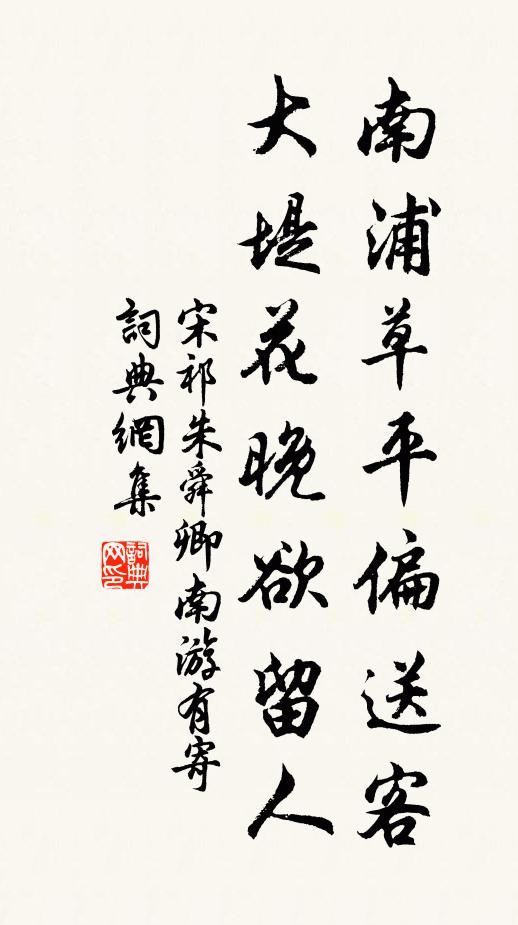 南浦草平偏送客
大堤花晚欲留人
宋祁朱舜卿南游有寄
詞典網集
詞典网印